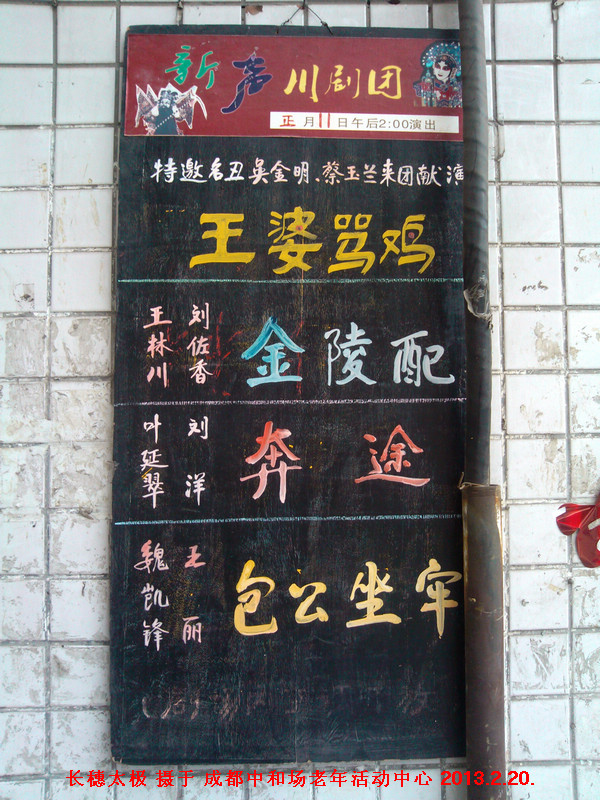 新声川剧团
正月11日午后2:00演出
特邀名丑吴金明、蔡玉兰来团献演
王婆骂鸡
刘佐香
王林川
金陵配
刘洋
叶延翠
奔途
王丽
魏凯锋
包公坐牢
长穗太极 摄于 成都中和场老年活动中心 2013.2.20.